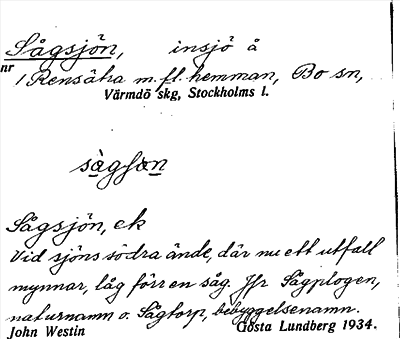 Sågsjön, insjö å
nr 1 Rensätra m. fl. hemman, Bo sn,
Värmdö skg, Stockholms l.
sågsjön, ek
Vid sjöns södra ände, där nu ett utfall
mynnar, låg förr en såg. Jfr Sågplogen,
naturnamn o. Sågtorp, bebyggelsenamn.
John Westin Gösta Lundberg 1934.